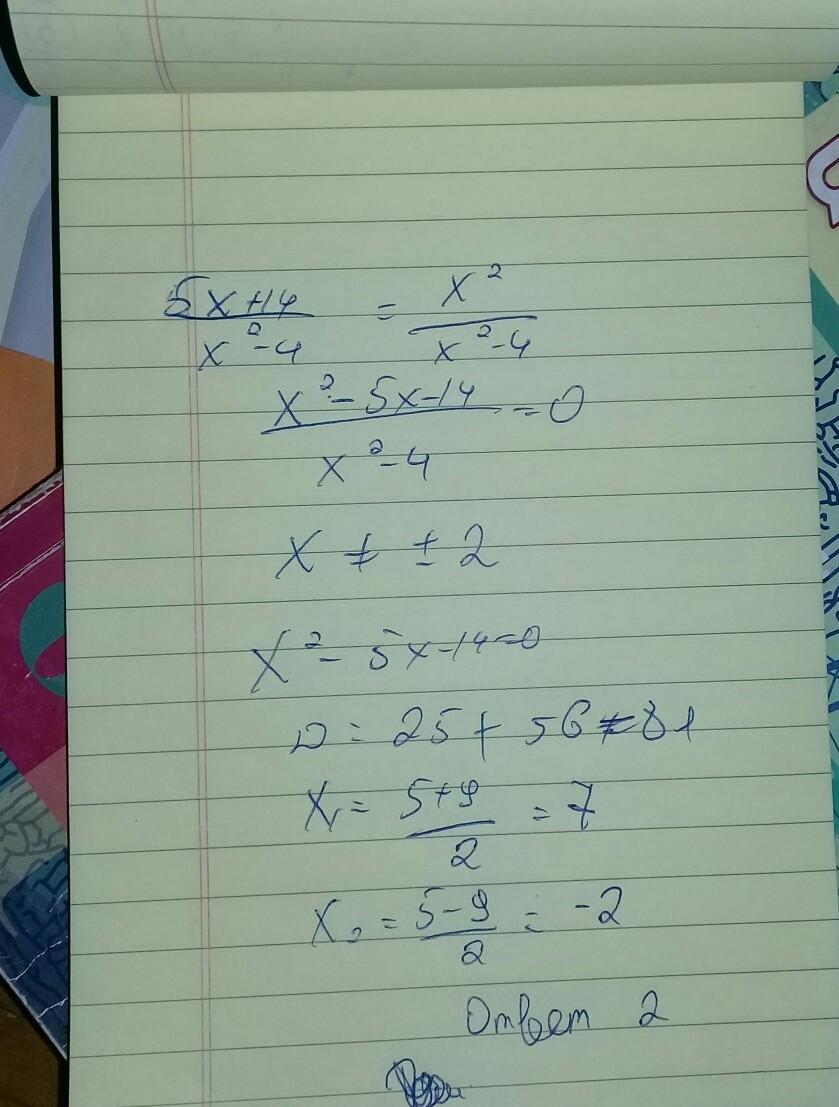 5x+14 / x²-4 = x² / x²-4
x²-5x-14 / x²-4 = 0
x ≠ ±2
x²-5x-14=0
D = 25+56=81
x₁ = 5+9 / 2 = 7
x₂ = 5-9 / 2 = -2
Ответ 2